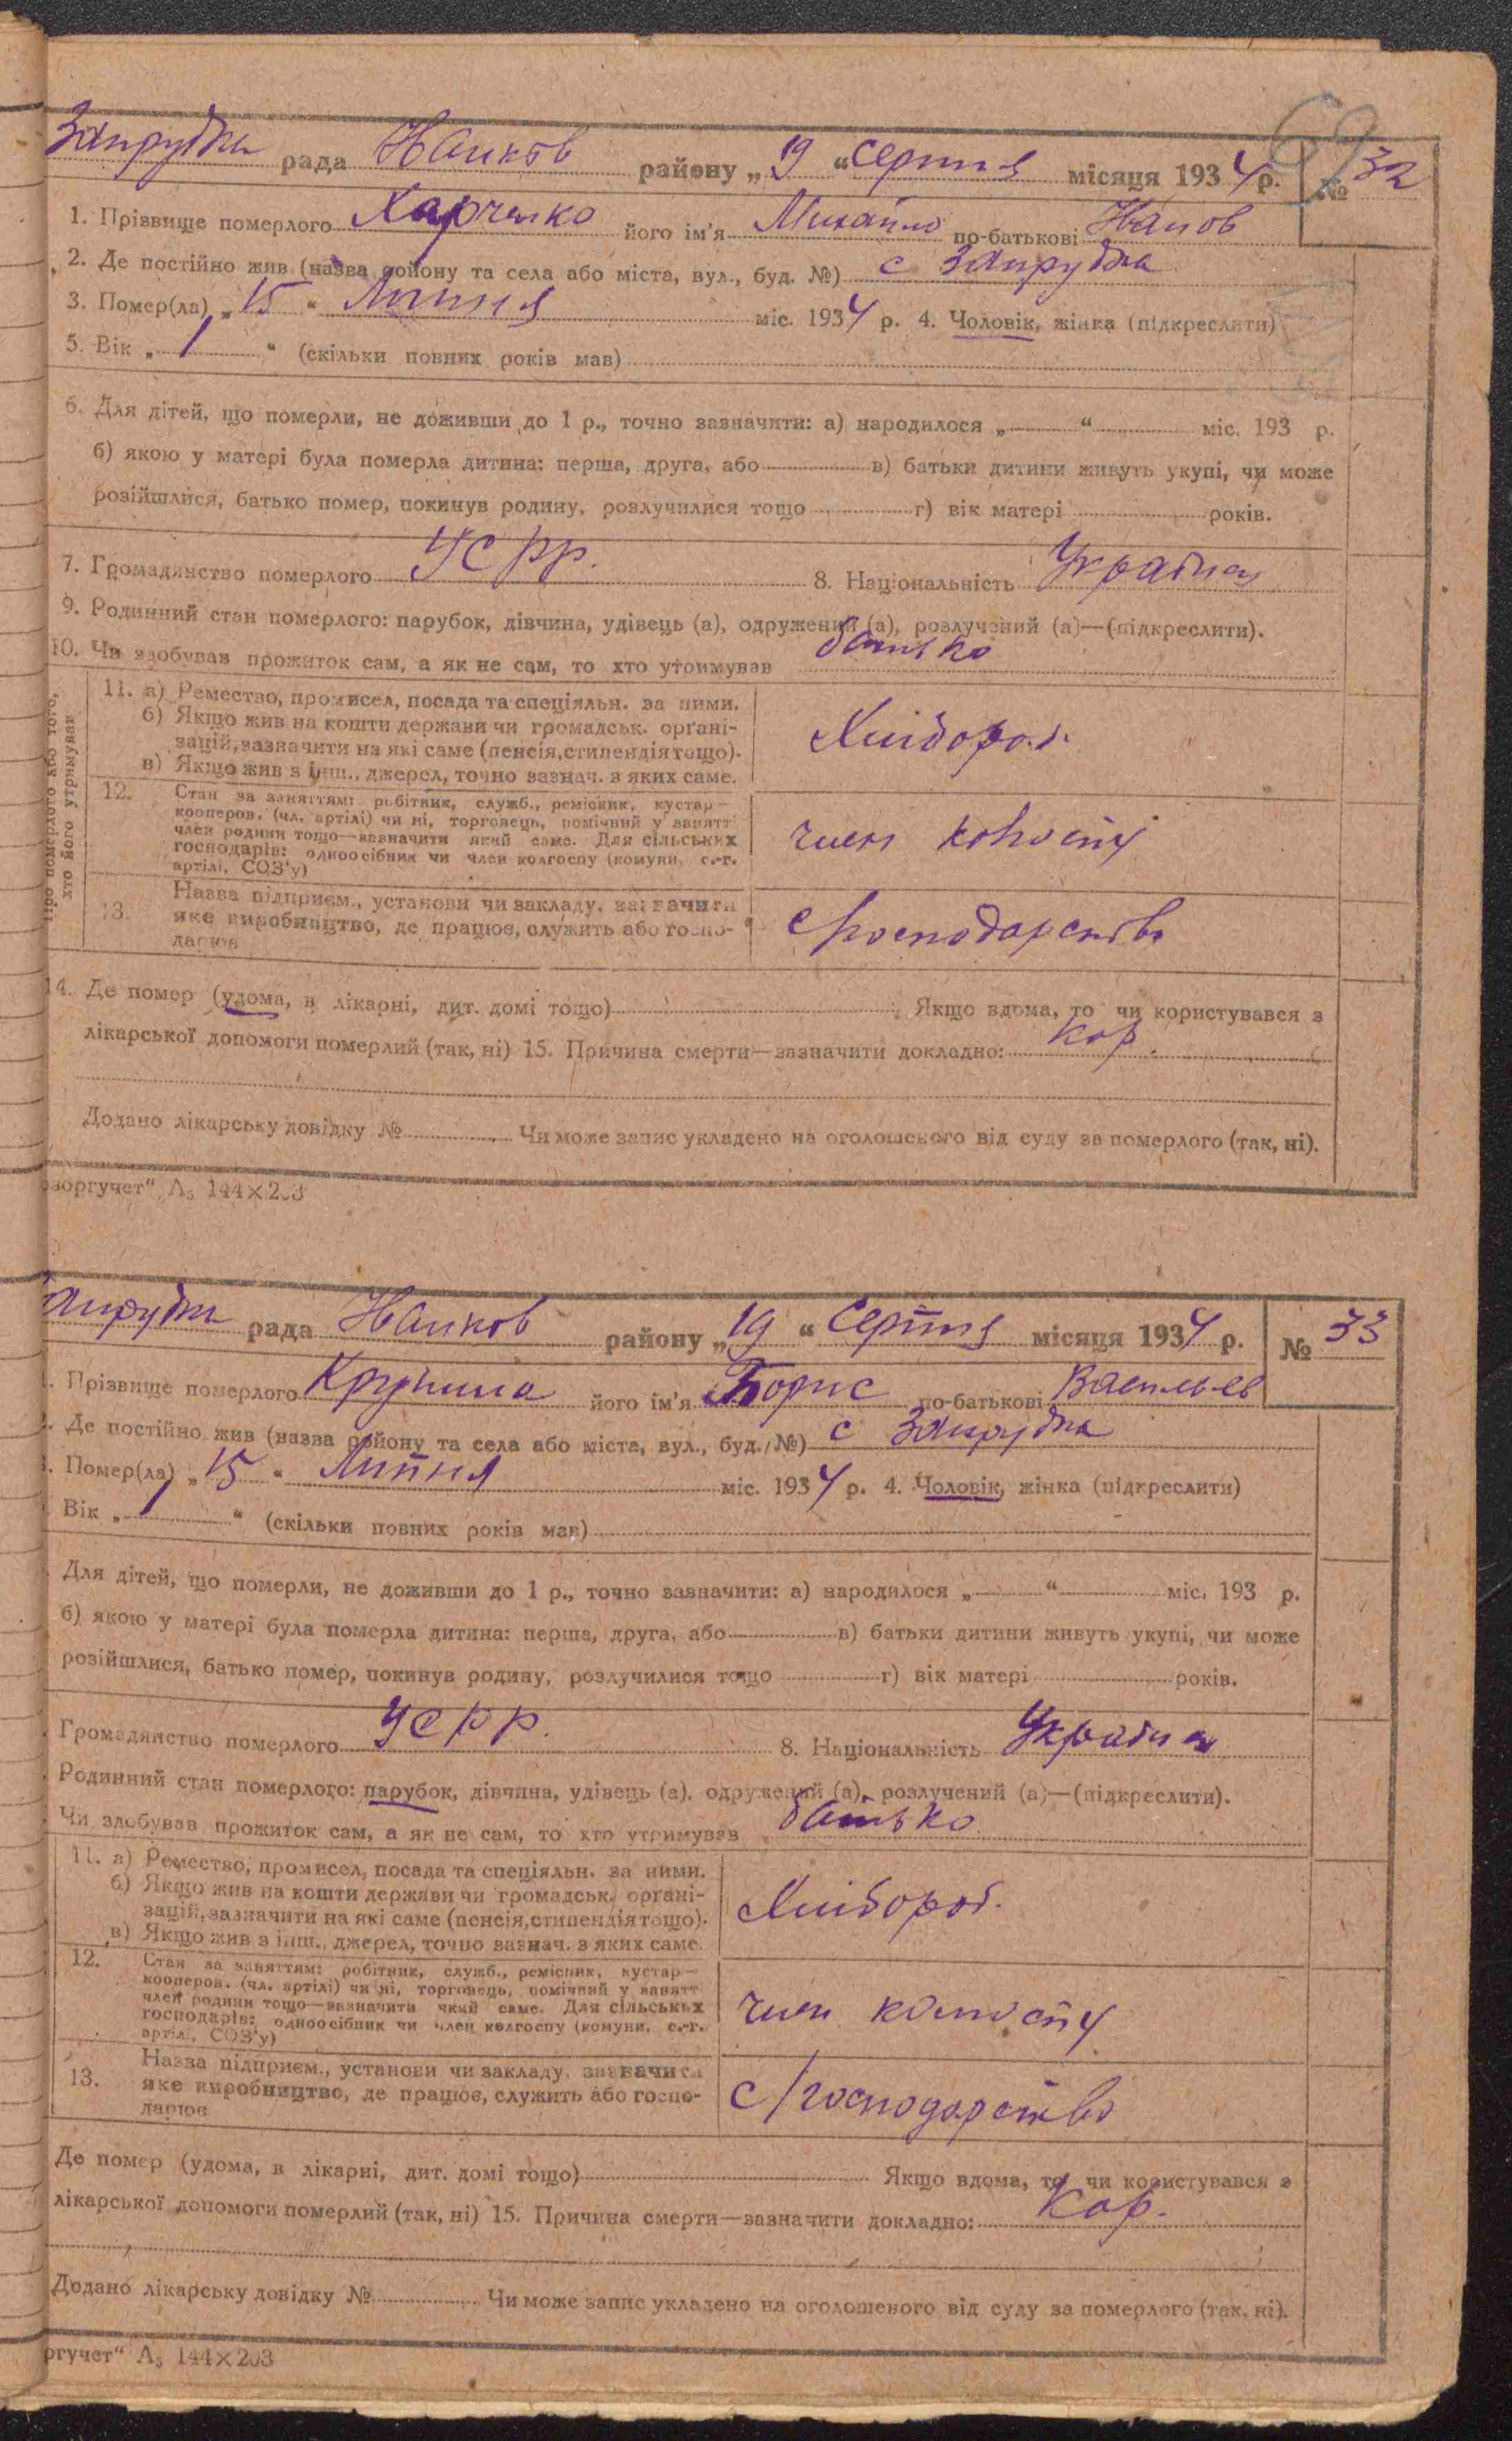 69
Запрудка рада району „19“ Серпня місяця 1934 р. № 32
1. Прізвище померлого Харченко його ім'я Михайло по-батькові Иванов
2. Де постійно жив (назва району та села або міста, вул., буд. №) с Запрудка
3. Помер(ла) „15“ Липня міс. 1934 р. 4. Чоловік, жінка (підкреслити)
5. Вік „1“ (скільки повних років мав)
6. Для дітей, що померли, не доживши до 1 р., точно зазначити: а) народилося „ “ міс. 193 р.
б) якою у матері була померла дитина: перша, друга, або в) батьки дитини живуть укупі, чи може
розійшлися, батько помер, покинув родину, розлучилися тощо г) вік матері років.
7. Громадянство померлого УСРР. 8. Національність
9. Родинний стан померлого: парубок, дівчина, удівець (а), одружений (а), розлучений (а)—(підкреслити).
10. Чи здобував прожиток сам, а як не сам, то хто утримував батько
Про померлого або того,
хто його утримував
11. а) Ремество, промисел, посада та спеціяльн. за ними.
б) Якщо жив на кошти держави чи громадськ. орґані-
зацій, зазначити на які саме (пенсія, стипендія тощо).
в) Якщо жив з інш., джерел, точно зазнач. з яких саме.
Хлібороб.
12. Стан за заняттям: робітник, служб., ремісник, кустар—
кооперов. (чл. артілі) чи ні, торговець, помічний у занятті
член родини тощо—зазначити який саме. Для сільських
господарів: одноосібник чи член колгоспу (комуни, с.-г.
артілі, СОЗ'у)
член колгоспу
13. Назва підприєм., установи чи закладу, зазначити
яке виробництво, де працює, служить або госпо-
дарює
с/господарство
14. Де помер (удома, в лікарні, дит. домі тощо) Якщо вдома, то чи користувався з
лікарської допомоги померлий (так, ні) 15. Причина смерти—зазначити докладно: Кор.
Додано лікарську довідку № Чи може запис укладено на оголошеного від суду за померлого (так, ні).
зоргучет“ А₅ 144×203
рада району „19“ Серпня місяця 1934 р. № 33
Прізвище померлого його ім'я Борис по-батькові Васильев
Де постійно жив (назва району та села або міста, вул., буд. №) с Запрудка
Помер(ла) „15“ Липня міс. 1934 р. 4. Чоловік, жінка (підкреслити)
Вік „1“ (скільки повних років мав)
Для дітей, що померли, не доживши до 1 р., точно зазначити: а) народилося „ “ міс. 193 р.
б) якою у матері була померла дитина: перша, друга, або в) батьки дитини живуть укупі, чи може
розійшлися, батько помер, покинув родину, розлучилися тощо г) вік матері років.
Громадянство померлого УСРР. 8. Національність
Родинний стан померлого: парубок, дівчина, удівець (а), одружений (а), розлучений (а)—(підкреслити).
Чи здобував прожиток сам, а як не сам, то хто утримував батько
11. а) Ремество, промисел, посада та спеціяльн. за ними.
б) Якщо жив на кошти держави чи громадськ. орґані-
зацій, зазначити на які саме (пенсія, стипендія тощо).
в) Якщо жив з інш., джерел, точно зазнач. з яких саме.
Хлібороб.
12. Стан за заняттям: робітник, служб., ремісник, кустар—
кооперов. (чл. артілі) чи ні, торговець, помічний у занятті
член родини тощо—зазначити який саме. Для сільських
господарів: одноосібник чи член колгоспу (комуни, с.-г.
артілі, СОЗ'у)
член колгоспу
13. Назва підприєм., установи чи закладу, зазначити
яке виробництво, де працює, служить або госпо-
дарює
с/господарство
Де помер (удома, в лікарні, дит. домі тощо) Якщо вдома, то чи користувався з
лікарської допомоги померлий (так, ні) 15. Причина смерти—зазначити докладно: Кор.
Додано лікарську довідку № Чи може запис укладено на оголошеного від суду за померлого (так, ні).
ргучет“ А₅ 144×203